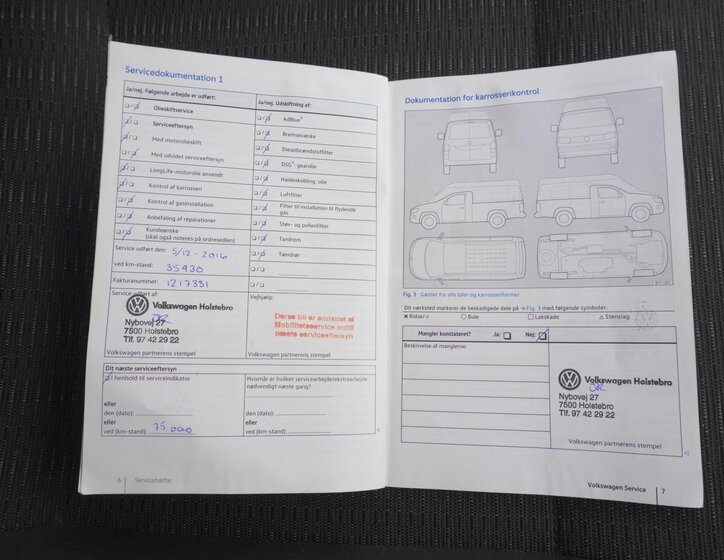 Servicedokumentation 1
Ja/nej. Følgende arbejde er udført:
Olieskiftservice
Serviceeftersyn
Med motorolieskift
Med udvidet serviceeftersyn
LongLife-motorolie anvendt
Kontrol af karrosseri
Kontrol af gasinstallation
Anbefaling af reparationer
Kundeønske
(skal også noteres på ordresedlen)
Service udført den: 5/12-2016
ved km-stand: 35930
Fakturanummer: 1217331
Service udført af:
Volkswagen Holstebro
Nybovej 27
7500 Holstebro
Tlf. 97 42 29 22
Volkswagen partnerens stempel
Ja/nej. Udskiftning af:
AdBlue®
Bremsevæske
Dieselbrændstoffilter
DSG®: gearolie
Haldexkobling: olie
Luftfilter
Filter til installation til flydende
gas
Støv- og pollenfilter
Tandrem
Tændrør
Vejhjælp:
Deres bil er omfattet af
Mobilitetsservice indtil
næste serviceeftersyn
Dit næste serviceeftersyn
I henhold til serviceindikator
eller
den (dato):
eller
ved (km-stand): 75.000
Hvornår er hvilket servicearbejde/ekstraarbejde
nødvendigt næste gang?
den (dato):
eller
ved (km-stand):
6 Servicehæfte
Dokumentation for karrosserikontrol
Fig. 3 Gælder for alle biler og karrosseriformer
Dit værksted markerer de beskadigede dele på → Fig. 3 med følgende symboler:
✕ Ridse/-r ○ Bule □ Lakskade △ Stenslag
Mangler konstateret? Ja: Nej:
Beskrivelse af manglerne:
Volkswagen Holstebro
Nybovej 27
7500 Holstebro
Tlf. 97 42 29 22
Volkswagen partnerens stempel
Volkswagen Service 7